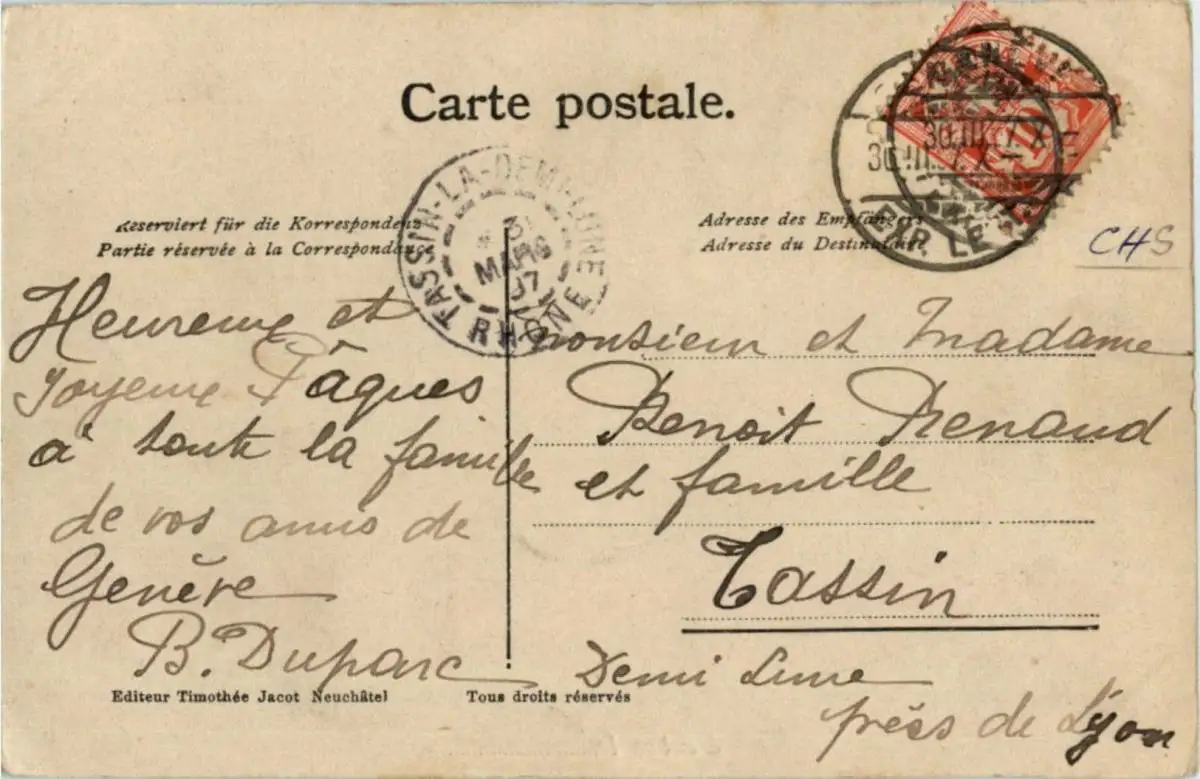 Carte postale.
TASSIN-LA-DEMI-LUNE
MARS
RHÔNE
EXP. LE
Reserviert für die Korrespondenz
Partie réservée à la Correspondance
Adresse des Empfängers
Adresse du Destinataire
CHS
Heureuse et
joyeuse Pâques
à toute la famille
de vos amis de
Genève
B. Duparc
monsieur et madame
Benoit Renaud
et famille
Tassin
Demi Lune
près de Lyon
Editeur Timothée Jacot Neuchâtel
Tous droits réservés